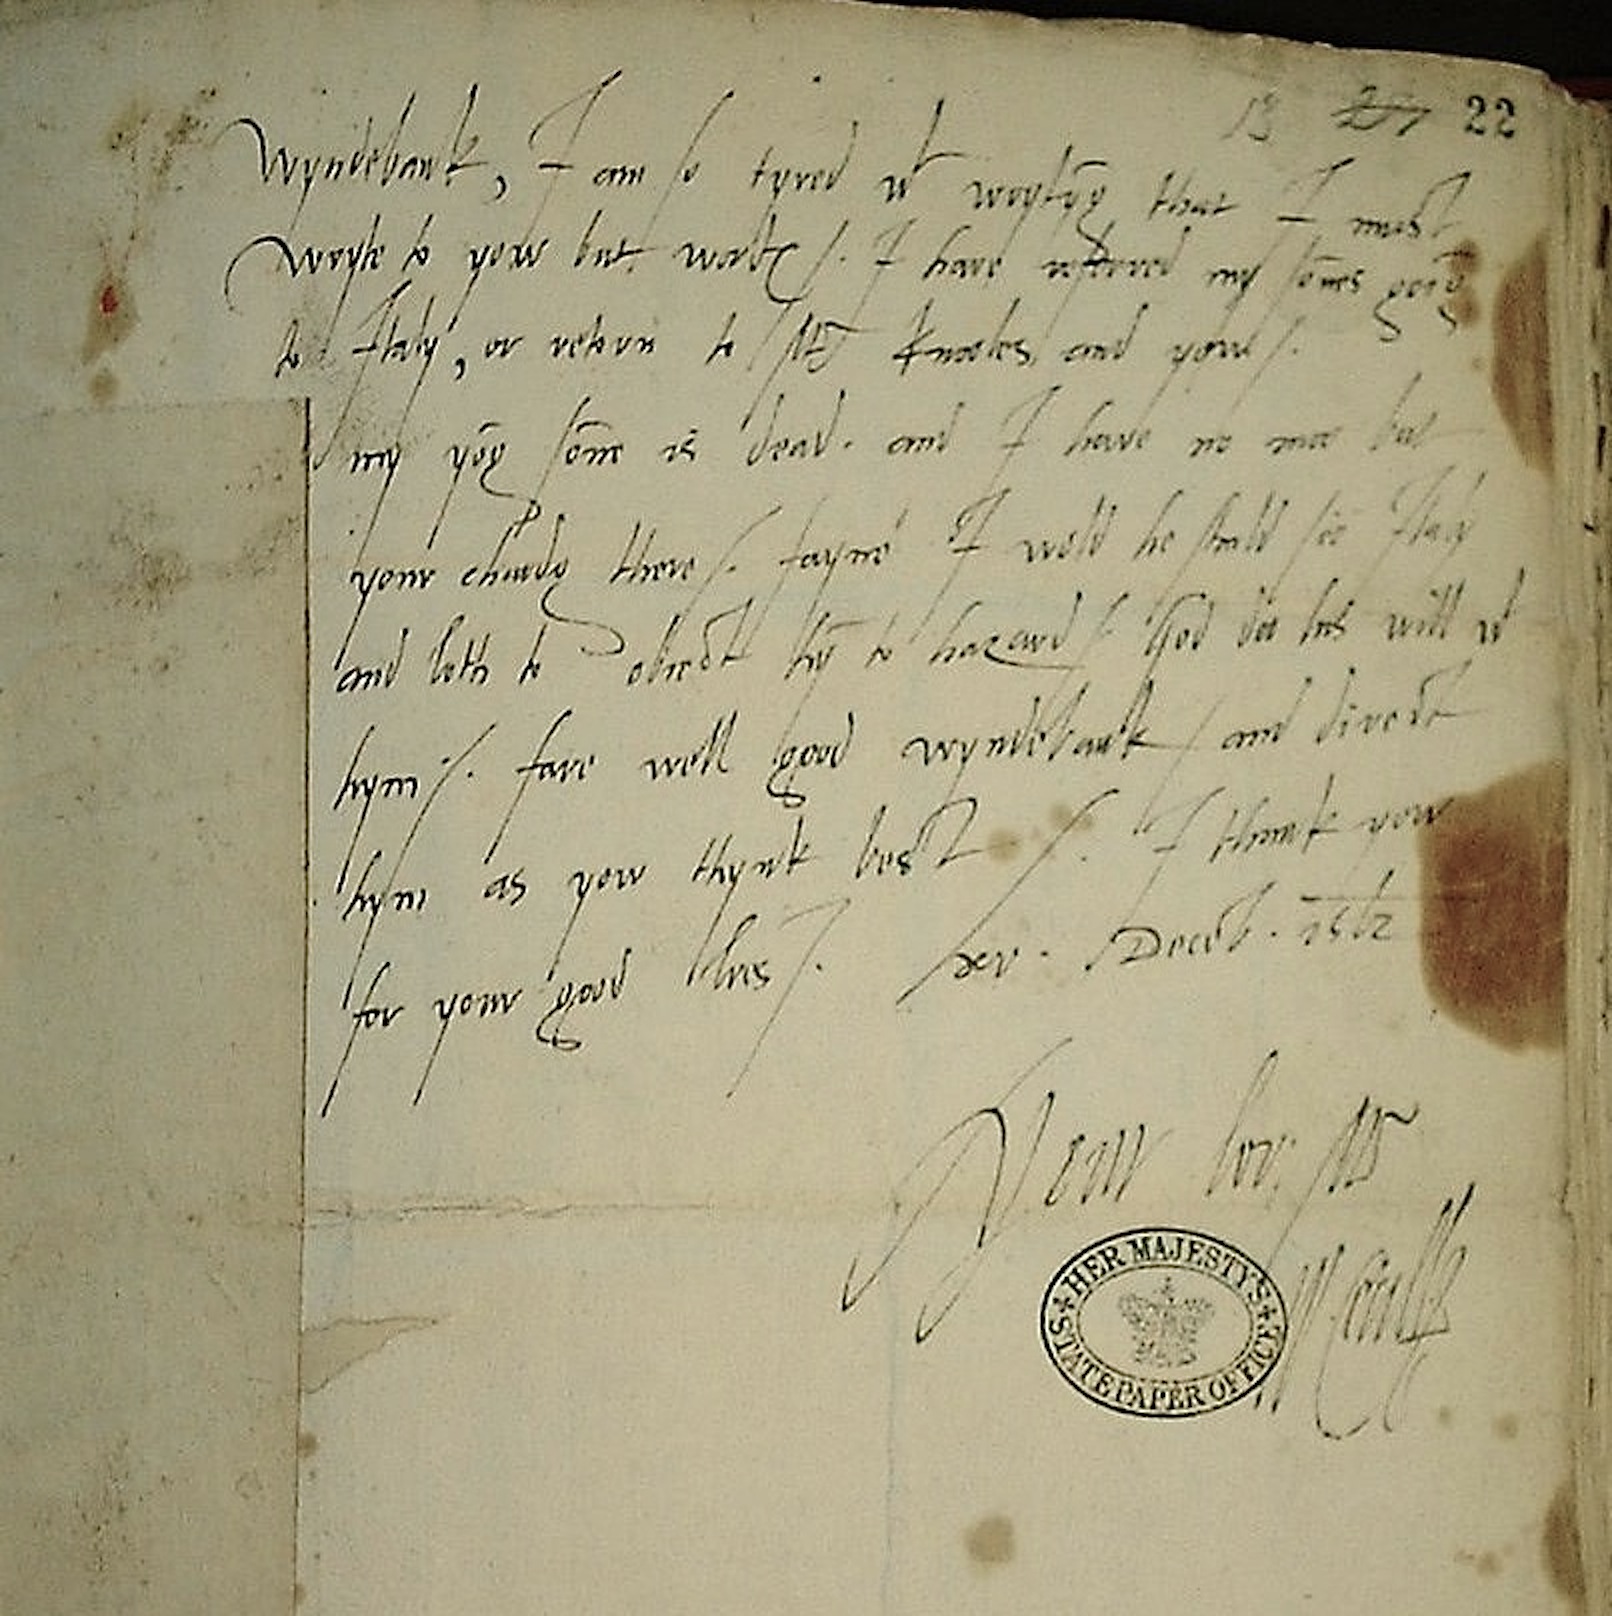 13 27 22
Wyndebank, I am so tyred wt wrytyg that I must
wryte to yow but wordes /. I have referred my sones goig
to Italy, or retorn to Mr Knoles and yow /.
my yog sone is dead. and I have no mor but
your chardg there /. fayne I wold he shuld see Italy
and loth to obiect hy to hazard /. God doo his will wt
hym /. fare well good wyndebank / and direct
hym as yow thynk best /. I thank yow
for your good lres /. xv. Deceb. 1562
Your lov. Mr
W. Cecill
HER MAJESTY'S
STATE PAPER OFFICE